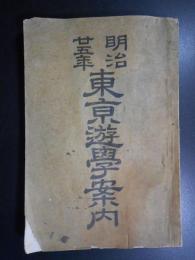 明治
廿五年
東亰遊學案内